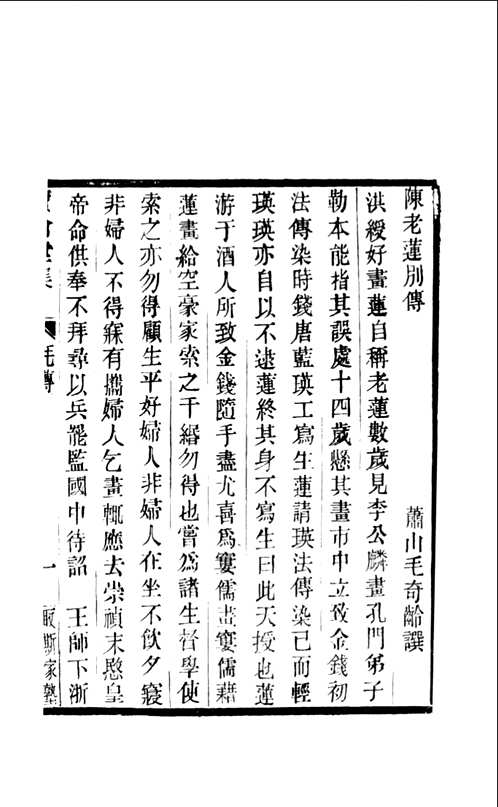 陳老蓮別傳
蕭山毛奇齡譔
洪綬好畫蓮自稱老蓮數歲見李公麟畫孔門弟子
勒本能指其誤處十四歲懸其畫市中立致金錢初
法傳染時錢唐藍瑛工寫生蓮請瑛法傳染已而輕
瑛瑛亦自以不逮蓮終其身不寫生曰此天授也蓮
游于酒人所致金錢隨手盡尤喜爲窶儒畫窶儒藉
蓮畫給空豪家索之千緡勿得也嘗爲諸生督學使
索之亦勿得顧生平好婦人非婦人在坐不飲夕寢
非婦人不得寐有攜婦人乞畫輒應去崇禎末愍皇
帝命供奉不拜尋以兵罷監國中待詔 王師下浙
堂集 毛傳 一 取斯家塾